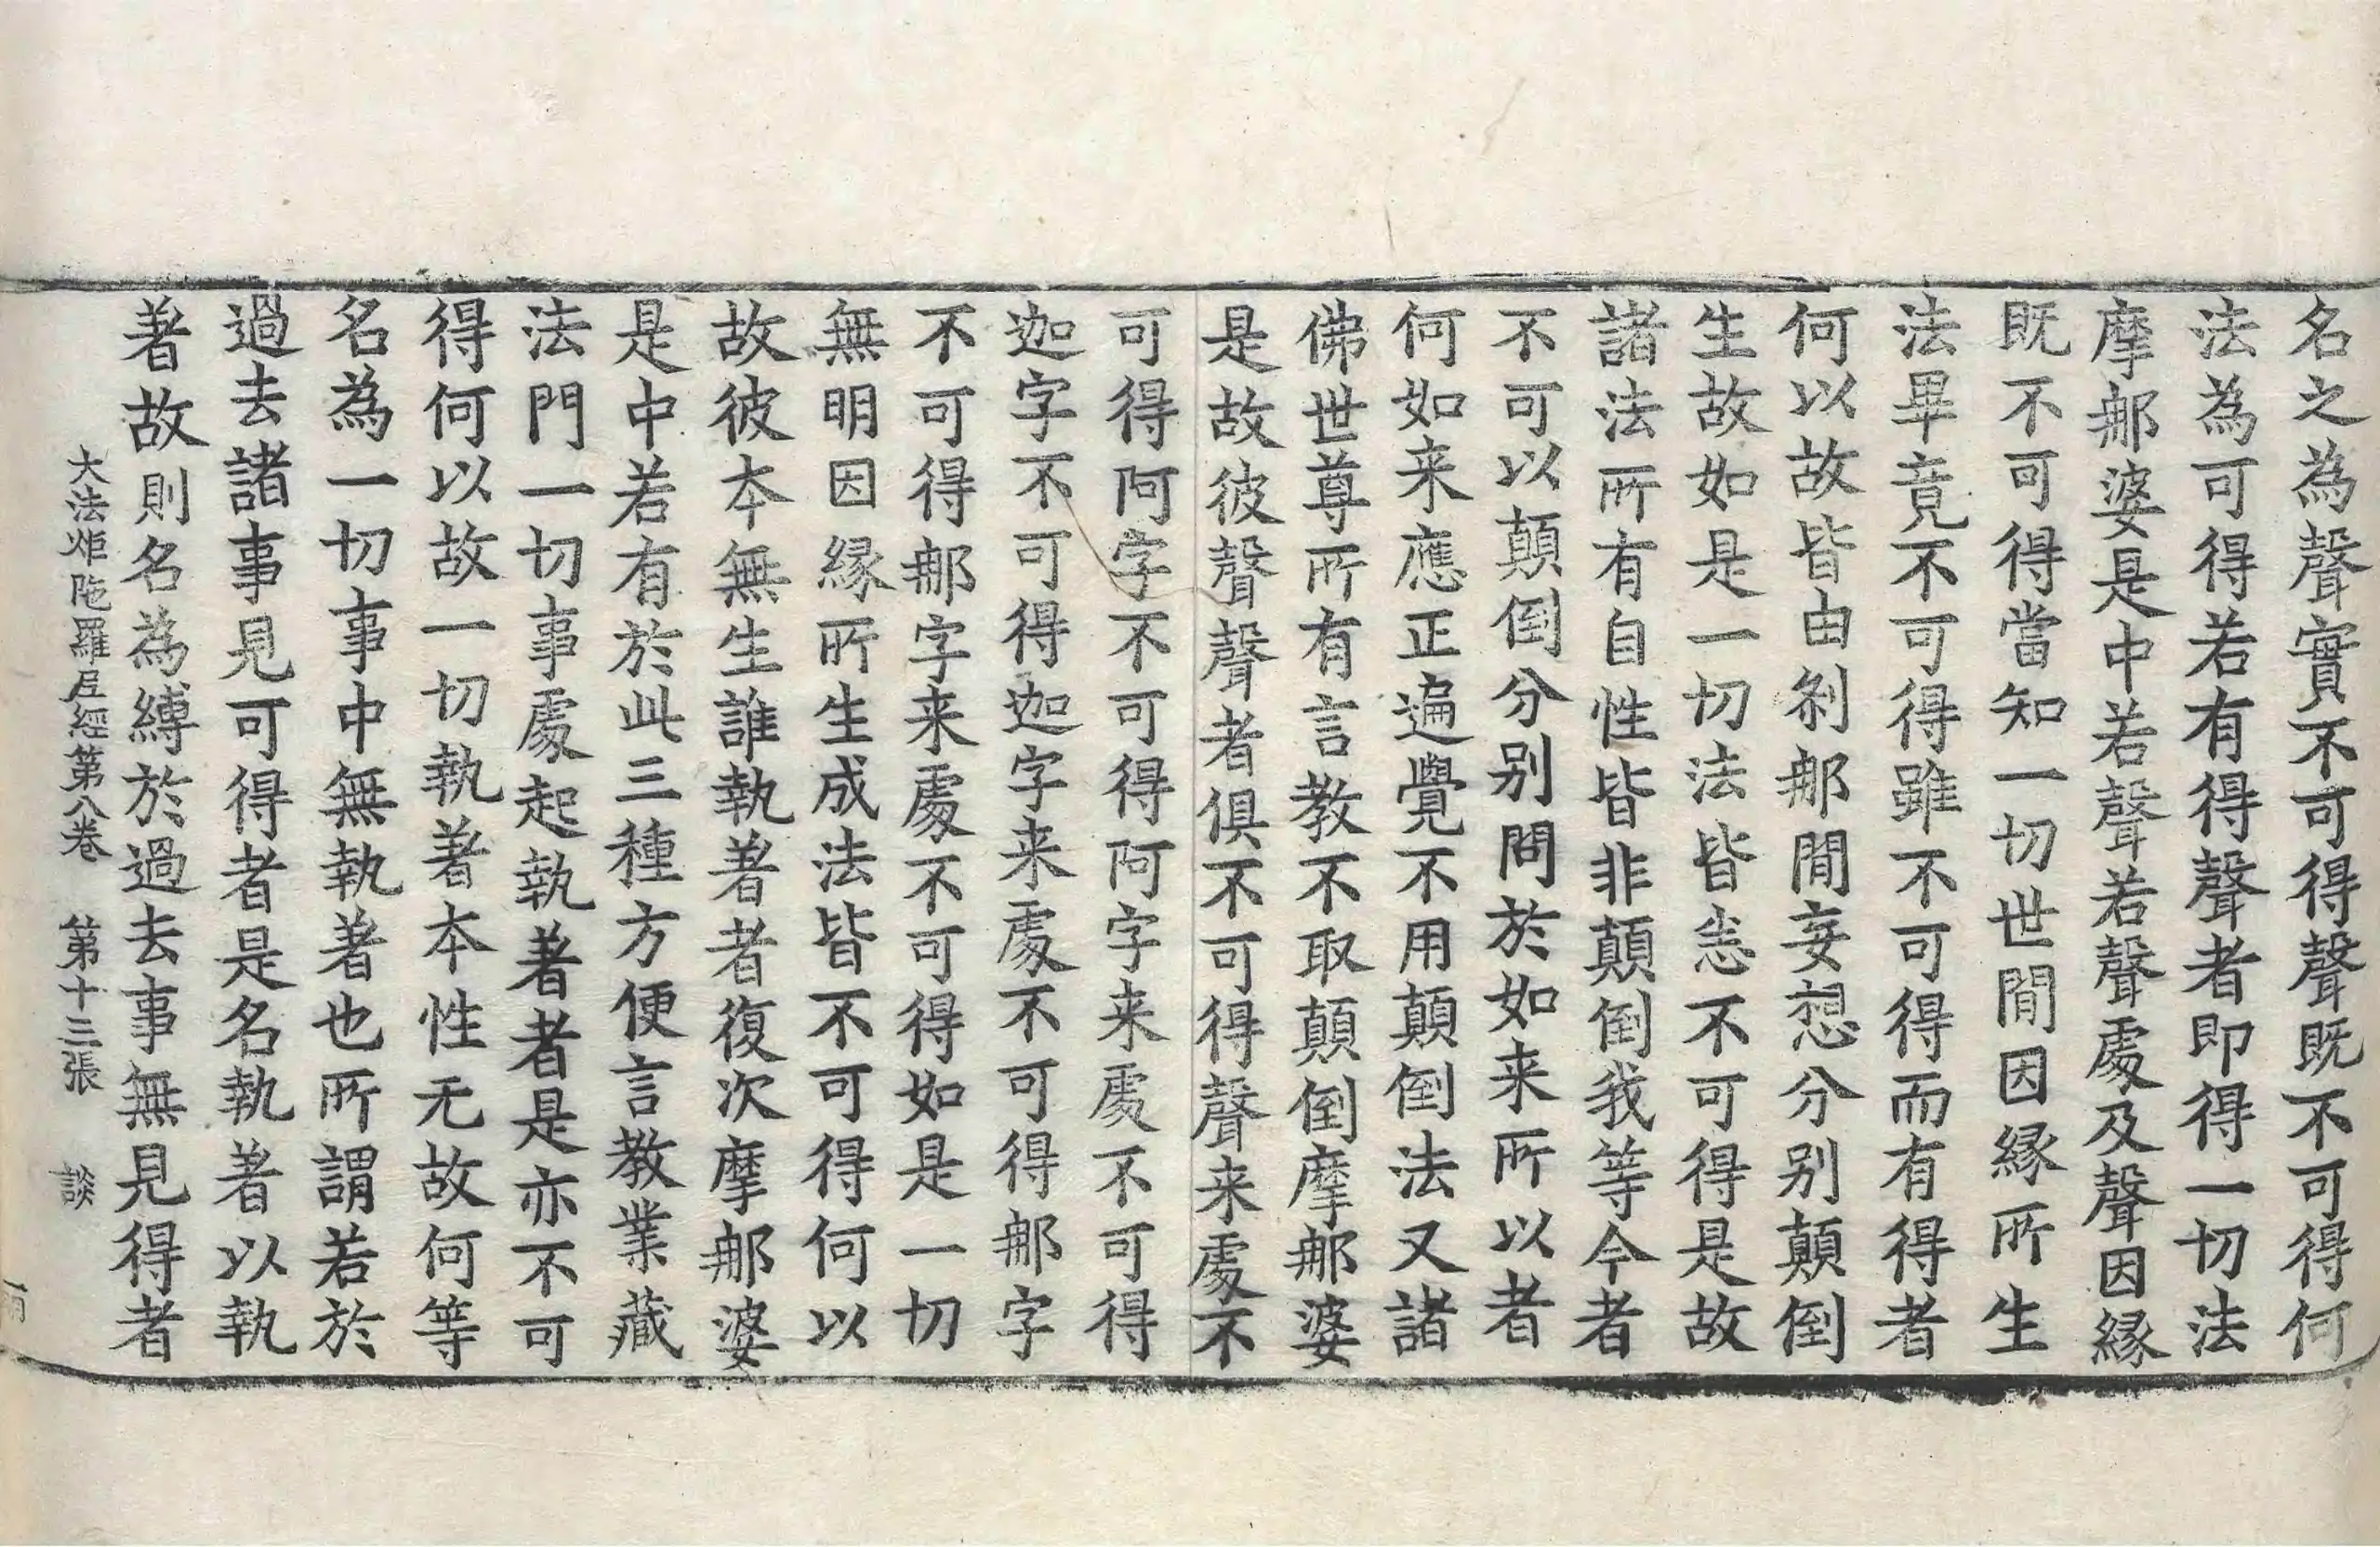 名之為聲實不可得聲既不可得何
法為可得若有得聲者即得一切法
摩那婆是中若聲若聲處及聲因縁
既不可得當知一切世間因縁所生
法畢竟不可得雖不可得而有得者
何以故皆由刹那間妄想分别顛倒
生故如是一切法皆悉不可得是故
諸法所有自性皆非顛倒我等今者
不可以顛倒分别問於如来所以者
何如来應正遍覺不用顛倒法又諸
佛世尊所有言教不取顛倒摩那婆
是故彼聲聲者俱不可得聲来處不
可得阿字不可得阿字来處不可得
迦字不可得迦字来處不可得那字
不可得那字来處不可得如是一切
無明因縁所生成法皆不可得何以
故彼夲無生誰執著者復次摩那婆
是中若有於此三種方便言教業藏
法門一切事處起執著者是亦不可
得何以故一切執著夲性无故何等
名為一切事中無執著也所謂若於
過去諸事見可得者是名執著以執
著故則名為縛於過去事無見得者
大法炬陁羅尼經第八卷 第十三張 談